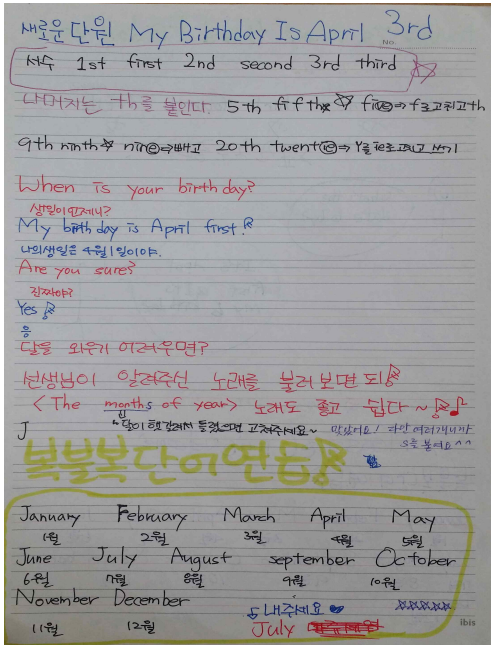 새로운 단원 My Birthday Is April 3rd
No.
서수 1st first 2nd second 3rd third
나머지는 th를 붙인다. 5th fifth five⇒f로 고치고 th
9th ninth nine⇒e빼고 20th twentie⇒ y를 ie로 고치고 쓰기
When is your birthday?
생일이 언제니?
My birthday is April first.
나의 생일은 4월 1일이야.
Are you sure?
진짜야?
Yes
응
달을 외우기 어려우면?
선생님이 알려주신 노래를 불러보면 되
<The months of year> 노래도 좋고 쉽다~♪
J
맞았어요!
s를 붙여요^^
복불복 단어연습
January February March April May
1월 2월 3월 4월 5월
June July August september October
6월 7월 8월 9월 10월
November December
11월 12월
내주세요♥
☆☆☆☆☆
July
ibis